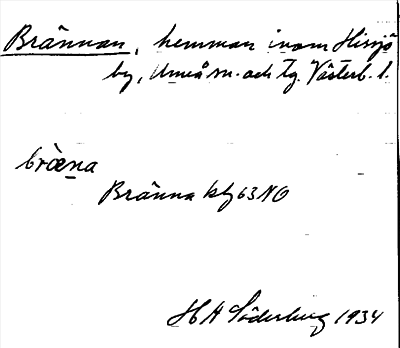 Brännan, hemman inom Hissjö
by, Umeå sn. och tg. Västerb. l.
bræ̀na
Bränna kbl 63 NO
H A Söderberg 1934